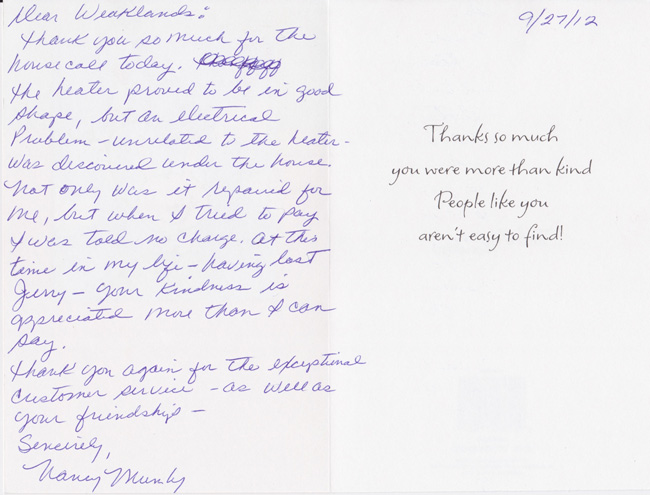 Dear Weaklands:
Thank you so much for the
housecall today.
the heater proved to be in good
shape, but an electrical
Problem - unrelated to the heater -
was discovered under the house.
Not only was it repaired for
me, but when I tried to pay
I was told no charge. At this
time in my life - having lost
Jerry - your kindness is
appreciated more than I can
say.
Thank you again for the exceptional
customer service - as well as
your friendship -
Sincerely,
Nancy
9/27/12
Thanks so much
you were more than kind
People like you
aren't easy to find!